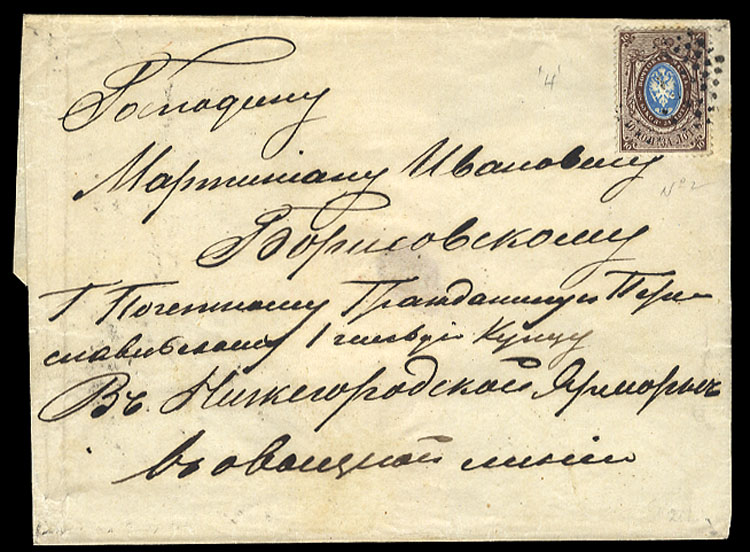 Господину
'4'
Мартиніану Ивановичу
№ 2
Борисовскому
Г. Почетному Гражданину и Пере-
славскому 1 гильдіи Купцу
Въ Нижегородской Ярморкѣ
въ овощной линіи